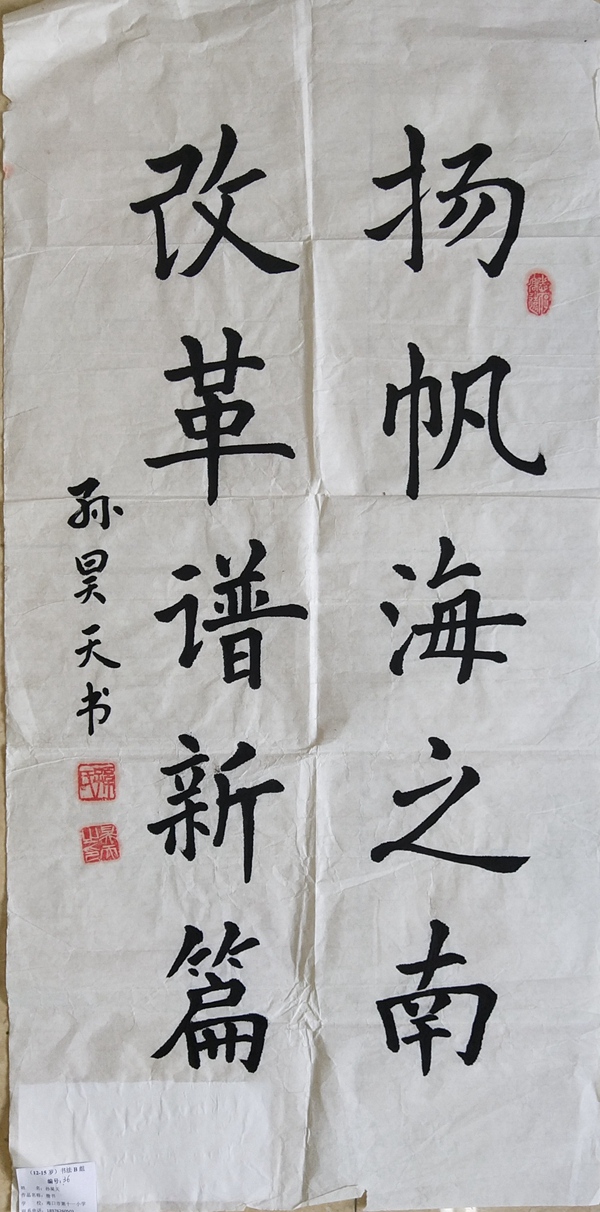 扬帆海之南
改革谱新篇
孙昊天书
孫氏
昊天之印
（12-15 岁）书法 B 组
编号：36